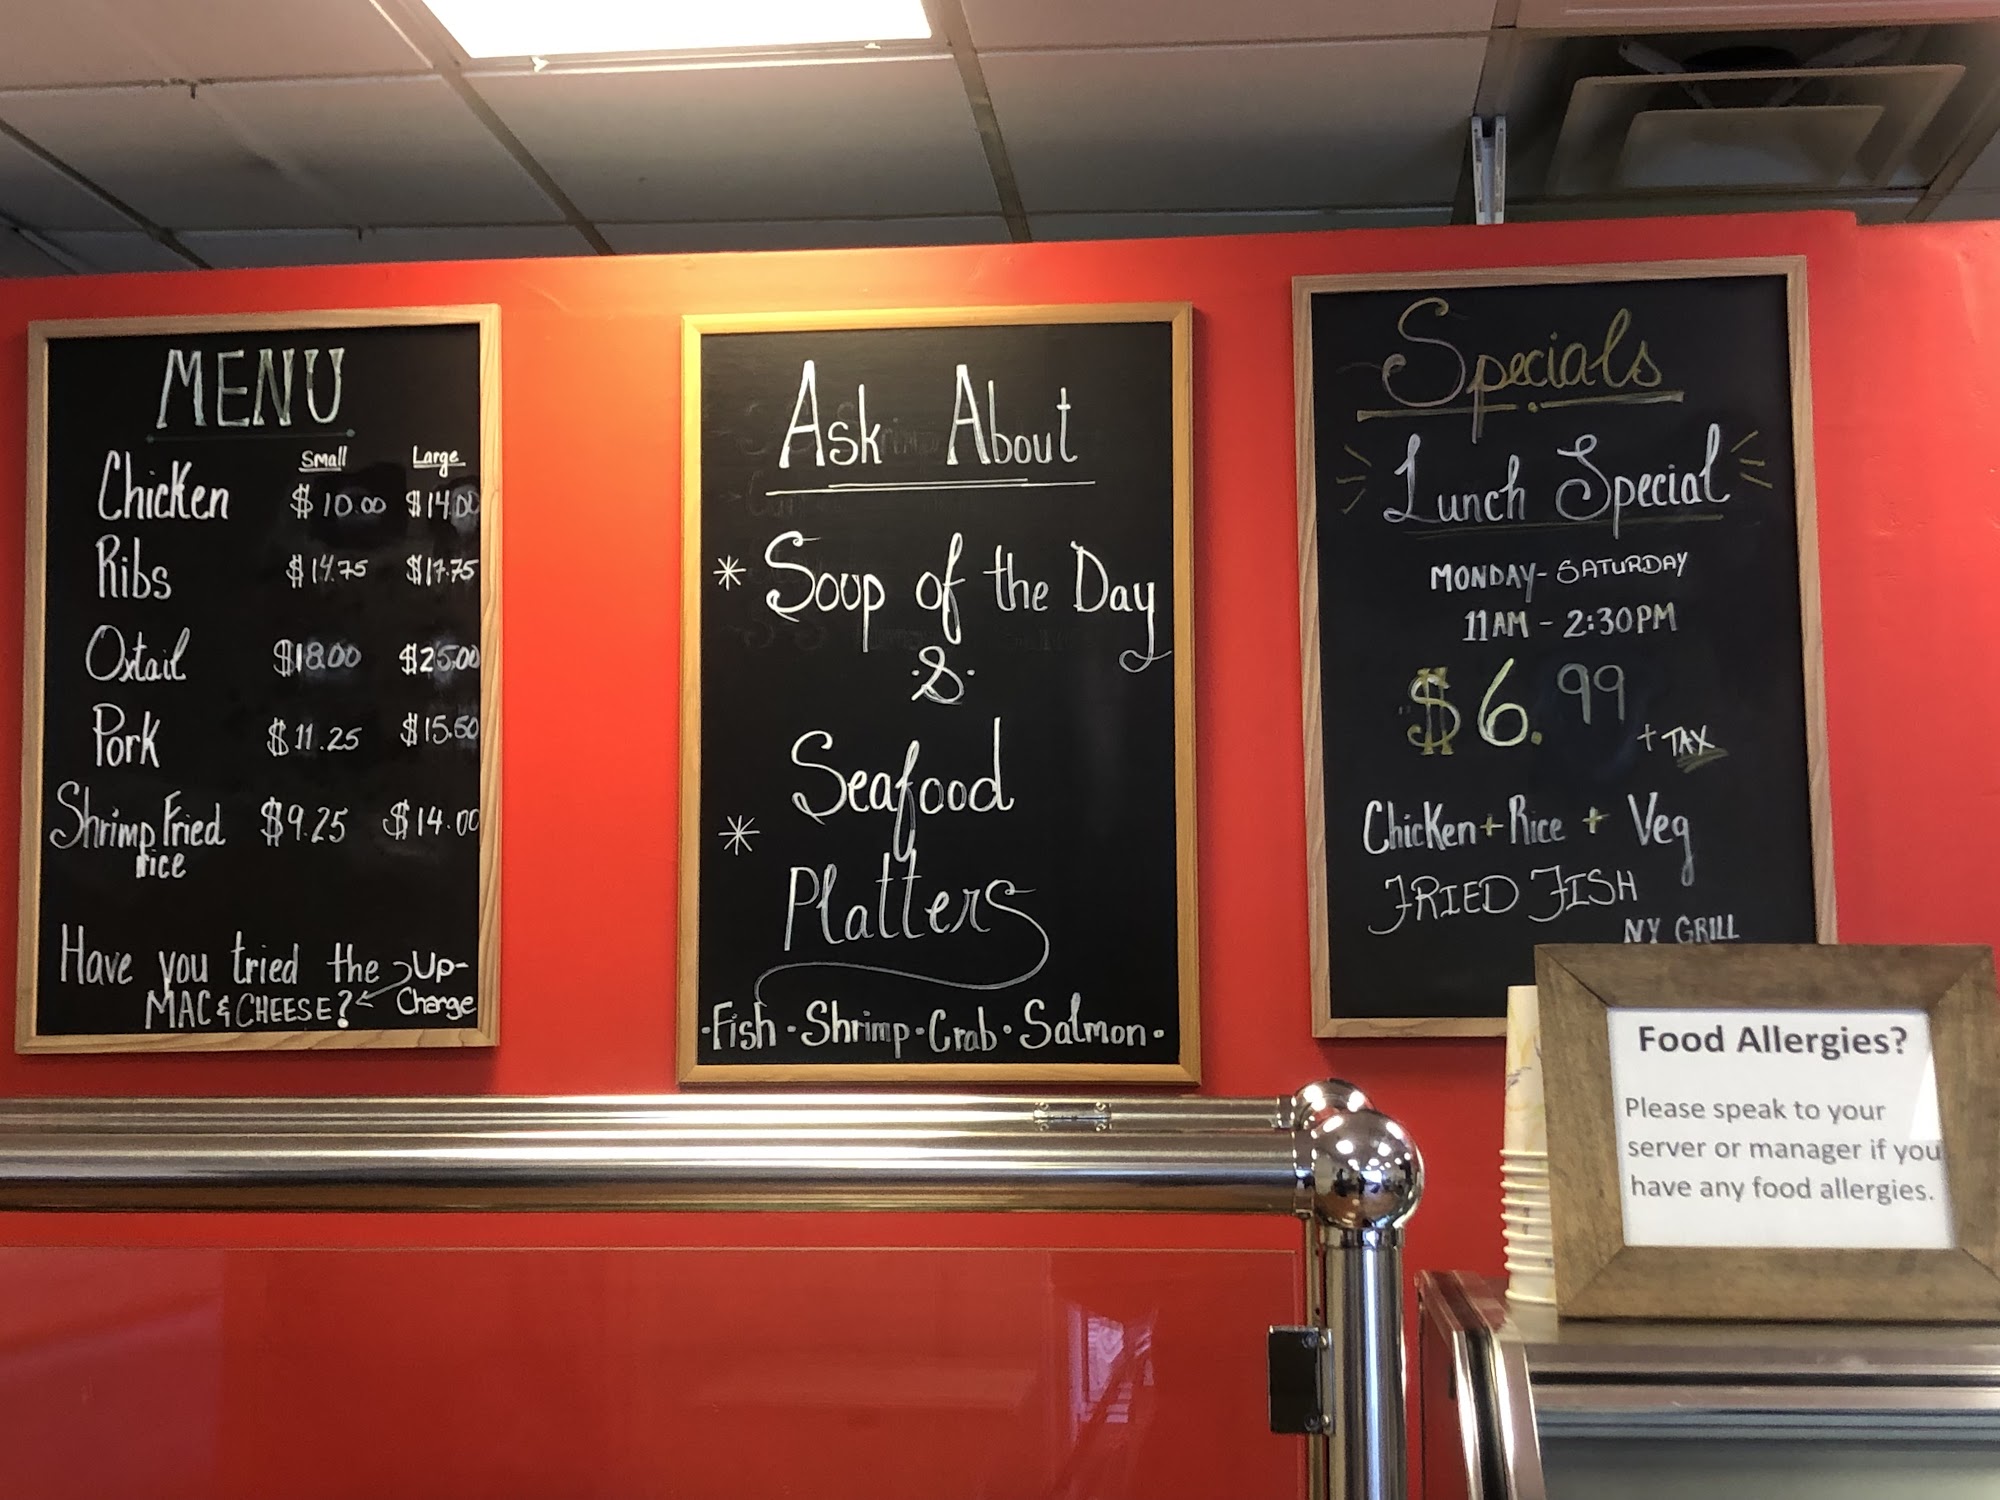 MENU
Small Large
Chicken $10.00 $14.00
Ribs $14.75 $17.75
Oxtail $18.00 $25.00
Pork $11.25 $15.50
Shrimp Fried $9.25 $14.00
rice
Have you tried the Up-
MAC & CHEESE? Charge
Ask About
* Soup of the Day
&
Seafood
*
Platters
·Fish·Shrimp·Crab·Salmon·
Specials
Lunch Special
MONDAY-SATURDAY
11AM - 2:30PM
$6.99
+ TAX
Chicken+Rice + Veg
FRIED FISH
NY GRILL
Food Allergies?
Please speak to your
server or manager if you
have any food allergies.